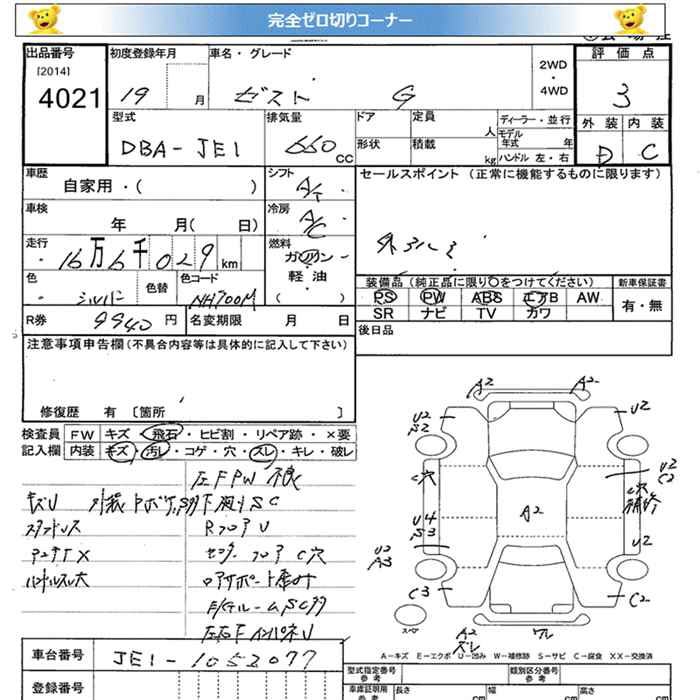 完全ゼロ切りコーナー
出品番号 初度登録年月 車名・グレード 評価点
[2014]
4021 19 月 ゼスト G 2WD・4WD 3
型式 排気量 ドア 定員 人 ディーラー・並行 外装 内装
DBA-JE1 660 CC 形状 積載 kg モデル年式 年 ハンドル 左・右 D C
車歴 自家用・( ) シフト A/T セールスポイント (正常に機能するものに限ります)
車検 年 月( 日) 冷房 A/C
走行 16万6千029km 燃料 ガソリン・軽・油( )
色 シルバー 色替 色コード NH700M 装備品(純正品に限り〇をつけてください) 新車保証書
PS PW ABS エアB AW 有・無
SR ナビ TV カワ
R券 9940円 名変期限 月 日 後日品
注意事項申告欄(不具合内容等は具体的に記入して下さい)
修復歴 有 [箇所 ]
検査員 FW キズ・飛石・ヒビ割・リペア跡・×要
記入欄 内装 キズ・汚レ・コゲ・穴・スレ・キレ・破レ
左F PW 不良
キズU
スタッドレス RフロアU
アンテナX フロアC穴
ハンドルスレ大
A2 A2
U2 U2
C穴 U2 C2
A2 補修
U4
U2 A3 U2
C3 C2
スペア
A2 スレ ワレ
A-キズ E-エクボ U-凹み W-補修跡 S-サビ C-腐食 XX-交換済
車台番号 JE1-1052077 型式指定番号 参考 類別区分番号 参考
登録番号 車庫証明用 参考 長さ cm 幅 cm 高さ cm